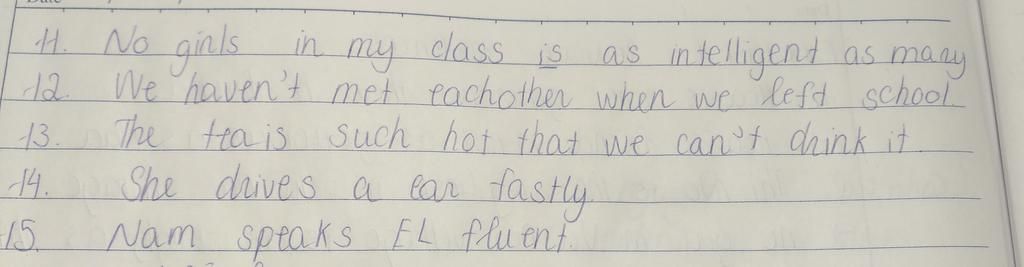 11. No girls in my class is as intelligent as many
12. We haven't met eachother when we left school.
13. The tea is such hot that we can't drink it.
14. She drives a car fastly.
15. Nam speaks EL fluent.